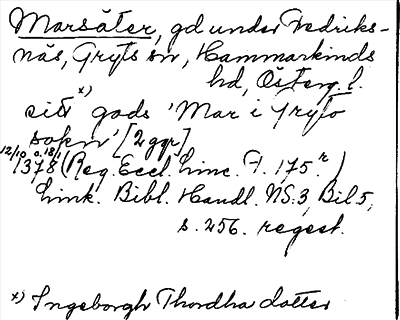 Marsäter, gd under Fredriks-
näs, Gryts sn, Hammarkinds
hd, Österg. l.
sitt x) gods 'Mar i Gryto
sokn' [2 ggr]
12/10 o. 18/1
1378 (Reg. Eccl. Linc. F. 175.r)
Link. Bibl. Handl. NS. 3, Bil 5,
s. 256. regest.
x) Ingeborgh Thordha dotter